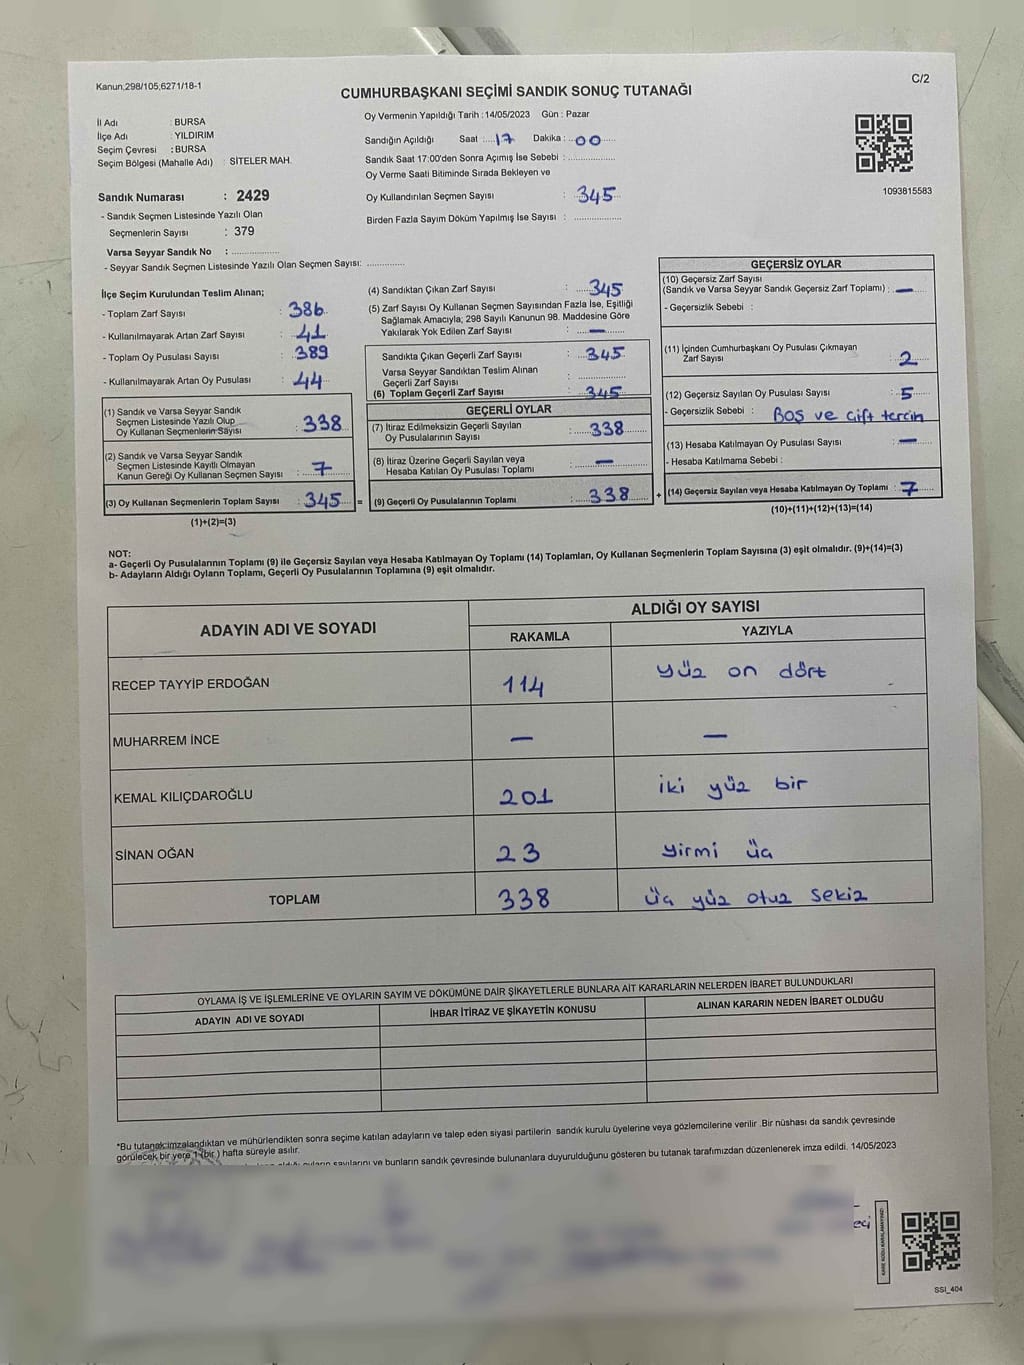 Kanun;298/105;6271/18-1
C/2
CUMHURBAŞKANI SEÇİMİ SANDIK SONUÇ TUTANAĞI
Oy Vermenin Yapıldığı Tarih : 14/05/2023 Gün : Pazar
İl Adı : BURSA
İlçe Adı : YILDIRIM
Seçim Çevresi : BURSA
Seçim Bölgesi (Mahalle Adı) : SİTELER MAH.
Sandığın Açıldığı Saat :....17 Dakika :..00......
Sandık Saat 17:00'den Sonra Açımış İse Sebebi :................
Oy Verme Saati Bitiminde Sırada Bekleyen ve
Oy Kullandırılan Seçmen Sayısı : ..345..
Birden Fazla Sayım Döküm Yapılmış İse Sayısı : ................
1093815583
Sandık Numarası : 2429
- Sandık Seçmen Listesinde Yazılı Olan
Seçmenlerin Sayısı : 379
Varsa Seyyar Sandık No : ................
- Seyyar Sandık Seçmen Listesinde Yazılı Olan Seçmen Sayısı: .............
İlçe Seçim Kurulundan Teslim Alınan;
- Toplam Zarf Sayısı : 386
- Kullanılmayarak Artan Zarf Sayısı : 41
- Toplam Oy Pusulası Sayısı : 389
- Kullanılmayarak Artan Oy Pusulası : 44
(1) Sandık ve Varsa Seyyar Sandık
Seçmen Listesinde Yazılı Olup
Oy Kullanan Seçmenlerin Sayısı : 338
(2) Sandık ve Varsa Seyyar Sandık
Seçmen Listesinde Kayıtlı Olmayan
Kanun Gereği Oy Kullanan Seçmen Sayısı : 7
(3) Oy Kullanan Seçmenlerin Toplam Sayısı : 345 =
(1)+(2)=(3)
(4) Sandıktan Çıkan Zarf Sayısı : 345
(5) Zarf Sayısı Oy Kullanan Seçmen Sayısından Fazla İse, Eşitliği
Sağlamak Amacıyla; 298 Sayılı Kanunun 98. Maddesine Göre
Yakılarak Yok Edilen Zarf Sayısı : —
Sandıkta Çıkan Geçerli Zarf Sayısı : 345
Varsa Seyyar Sandıktan Teslim Alınan
Geçerli Zarf Sayısı : ................
(6) Toplam Geçerli Zarf Sayısı : 345
GEÇERLİ OYLAR
(7) İtiraz Edilmeksizin Geçerli Sayılan
Oy Pusulalarının Sayısı : 338
(8) İtiraz Üzerine Geçerli Sayılan veya
Hesaba Katılan Oy Pusulası Toplamı : —
(9) Geçerli Oy Pusulalarının Toplamı : 338 +
GEÇERSİZ OYLAR
(10) Geçersiz Zarf Sayısı
(Sandık ve Varsa Seyyar Sandık Geçersiz Zarf Toplamı) : —
- Geçersizlik Sebebi :
(11) İçinden Cumhurbaşkanı Oy Pusulası Çıkmayan
Zarf Sayısı : 2
(12) Geçersiz Sayılan Oy Pusulası Sayısı : 5
- Geçersizlik Sebebi : Boş ve çift tercih
(13) Hesaba Katılmayan Oy Pusulası Sayısı : —
- Hesaba Katılmama Sebebi :
(14) Geçersiz Sayılan veya Hesaba Katılmayan Oy Toplamı : 7
(10)+(11)+(12)+(13)=(14)
NOT:
a- Geçerli Oy Pusulalarının Toplamı (9) ile Geçersiz Sayılan veya Hesaba Katılmayan Oy Toplamı (14) Toplamları, Oy Kullanan Seçmenlerin Toplam Sayısına (3) eşit olmalıdır. (9)+(14)=(3)
b- Adayların Aldığı Oyların Toplamı, Geçerli Oy Pusulalarının Toplamına (9) eşit olmalıdır.
ADAYIN ADI VE SOYADI ALDIĞI OY SAYISI
RAKAMLA YAZIYLA
RECEP TAYYİP ERDOĞAN 114 yüz on dört
MUHARREM İNCE — —
KEMAL KILIÇDAROĞLU 201 iki yüz bir
SİNAN OĞAN 23 yirmi üç
TOPLAM 338 üç yüz otuz sekiz
OYLAMA İŞ VE İŞLEMLERİNE VE OYLARIN SAYIM VE DÖKÜMÜNE DAİR ŞİKAYETLERLE BUNLARA AİT KARARLARIN NELERDEN İBARET BULUNDUKLARI
ADAYIN ADI VE SOYADI İHBAR İTİRAZ VE ŞİKAYETİN KONUSU ALINAN KARARIN NEDEN İBARET OLDUĞU
*Bu tutanak imzalandıktan ve mühürlendikten sonra seçime katılan adayların ve talep eden siyasi partilerin sandık kurulu üyelerine veya gözlemcilerine verilir .Bir nüshası da sandık çevresinde
görülecek bir yere 1 (bir ) hafta süreyle asılır.
sayılarını ve bunların sandık çevresinde bulunanlara duyurulduğunu gösteren bu tutanak tarafımızdan düzenlenerek imza edildi. 14/05/2023
KARE KODU KARALAMAYINIZ!
SSI_404